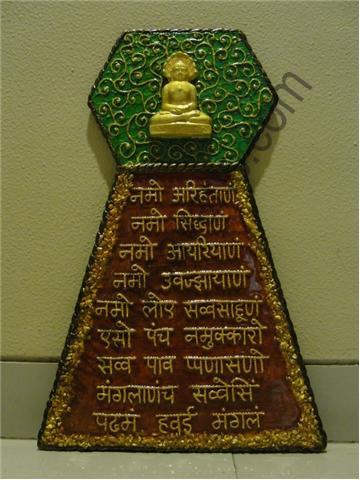 नमो अरिहंताणं
नमो सिद्धाणं
नमो आयरियाणं
नमो उवज्झायाणं
नमो लोए सव्वसाहूणं
एसो पंच नमुक्कारो
सव्व पाव प्पणासणो
मंगलाणंच सव्वेसिं
पढम हवई मंगलं